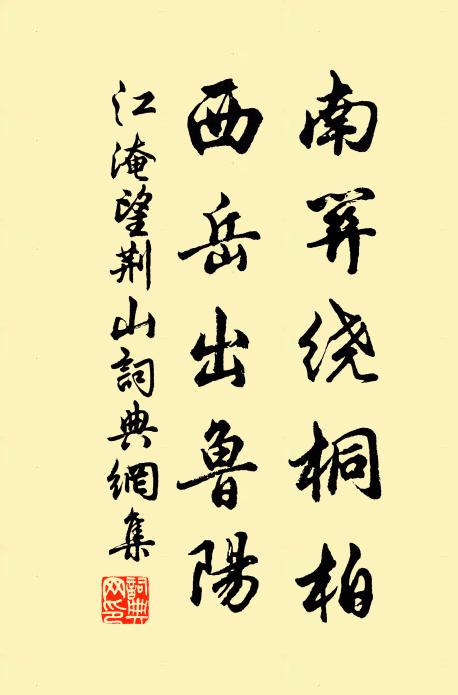 南關绕桐柏
西岳出鲁陽
江淹望荆山詞典網集
詞典网印